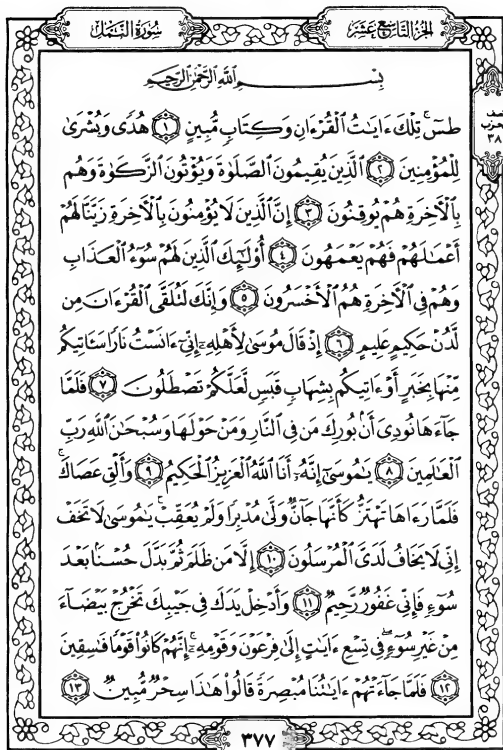 الجزء التاسع عشر
سورة النمل
بِسْمِ اللَّهِ الرَّحْمَٰنِ الرَّحِيمِ
طسٓ ۚ تِلْكَ ءَايَٰتُ الْقُرْءَانِ وَكِتَابٍ مُّبِينٍ ١ هُدًى وَبُشْرَىٰ
لِلْمُؤْمِنِينَ ٢ الَّذِينَ يُقِيمُونَ الصَّلَوٰةَ وَيُؤْتُونَ الزَّكَوٰةَ وَهُم
بِالْءَاخِرَةِ هُمْ يُوقِنُونَ ٣ إِنَّ الَّذِينَ لَا يُؤْمِنُونَ بِالْءَاخِرَةِ زَيَّنَّا لَهُمْ
أَعْمَٰلَهُمْ فَهُمْ يَعْمَهُونَ ٤ أُو۟لَٰٓئِكَ الَّذِينَ لَهُمْ سُوٓءُ الْعَذَابِ
وَهُمْ فِي الْءَاخِرَةِ هُمُ الْأَخْسَرُونَ ٥ وَإِنَّكَ لَتُلَقَّى الْقُرْءَانَ مِن
لَّدُنْ حَكِيمٍ عَلِيمٍ ٦ إِذْ قَالَ مُوسَىٰ لِأَهْلِهِۦٓ إِنِّىٓ ءَانَسْتُ نَارًا سَـَٔاتِيكُم
مِّنْهَا بِخَبَرٍ أَوْ ءَاتِيكُم بِشِهَابٍ قَبَسٍ لَّعَلَّكُمْ تَصْطَلُونَ ٧ فَلَمَّا
جَآءَهَا نُودِىَ أَنۢ بُورِكَ مَن فِي النَّارِ وَمَنْ حَوْلَهَا وَسُبْحَٰنَ اللَّهِ رَبِّ
الْعَٰلَمِينَ ٨ يَٰمُوسَىٰٓ إِنَّهُۥٓ أَنَا اللَّهُ الْعَزِيزُ الْحَكِيمُ ٩ وَأَلْقِ عَصَاكَ ۚ
فَلَمَّا رَءَاهَا تَهْتَزُّ كَأَنَّهَا جَآنٌّ وَلَّىٰ مُدْبِرًا وَلَمْ يُعَقِّبْ ۚ يَٰمُوسَىٰ لَا تَخَفْ
إِنِّى لَا يَخَافُ لَدَىَّ الْمُرْسَلُونَ ١٠ إِلَّا مَن ظَلَمَ ثُمَّ بَدَّلَ حُسْنًۢا بَعْدَ
سُوٓءٍ فَإِنِّى غَفُورٌ رَّحِيمٌ ١١ وَأَدْخِلْ يَدَكَ فِى جَيْبِكَ تَخْرُجْ بَيْضَآءَ
مِنْ غَيْرِ سُوٓءٍ ۖ فِى تِسْعِ ءَايَٰتٍ إِلَىٰ فِرْعَوْنَ وَقَوْمِهِۦٓ ۚ إِنَّهُمْ كَانُوا۟ قَوْمًا فَٰسِقِينَ
١٢ فَلَمَّا جَآءَتْهُمْ ءَايَٰتُنَا مُبْصِرَةً قَالُوا۟ هَٰذَا سِحْرٌ مُّبِينٌ ١٣
الحزب
٣٨
٣٧٧